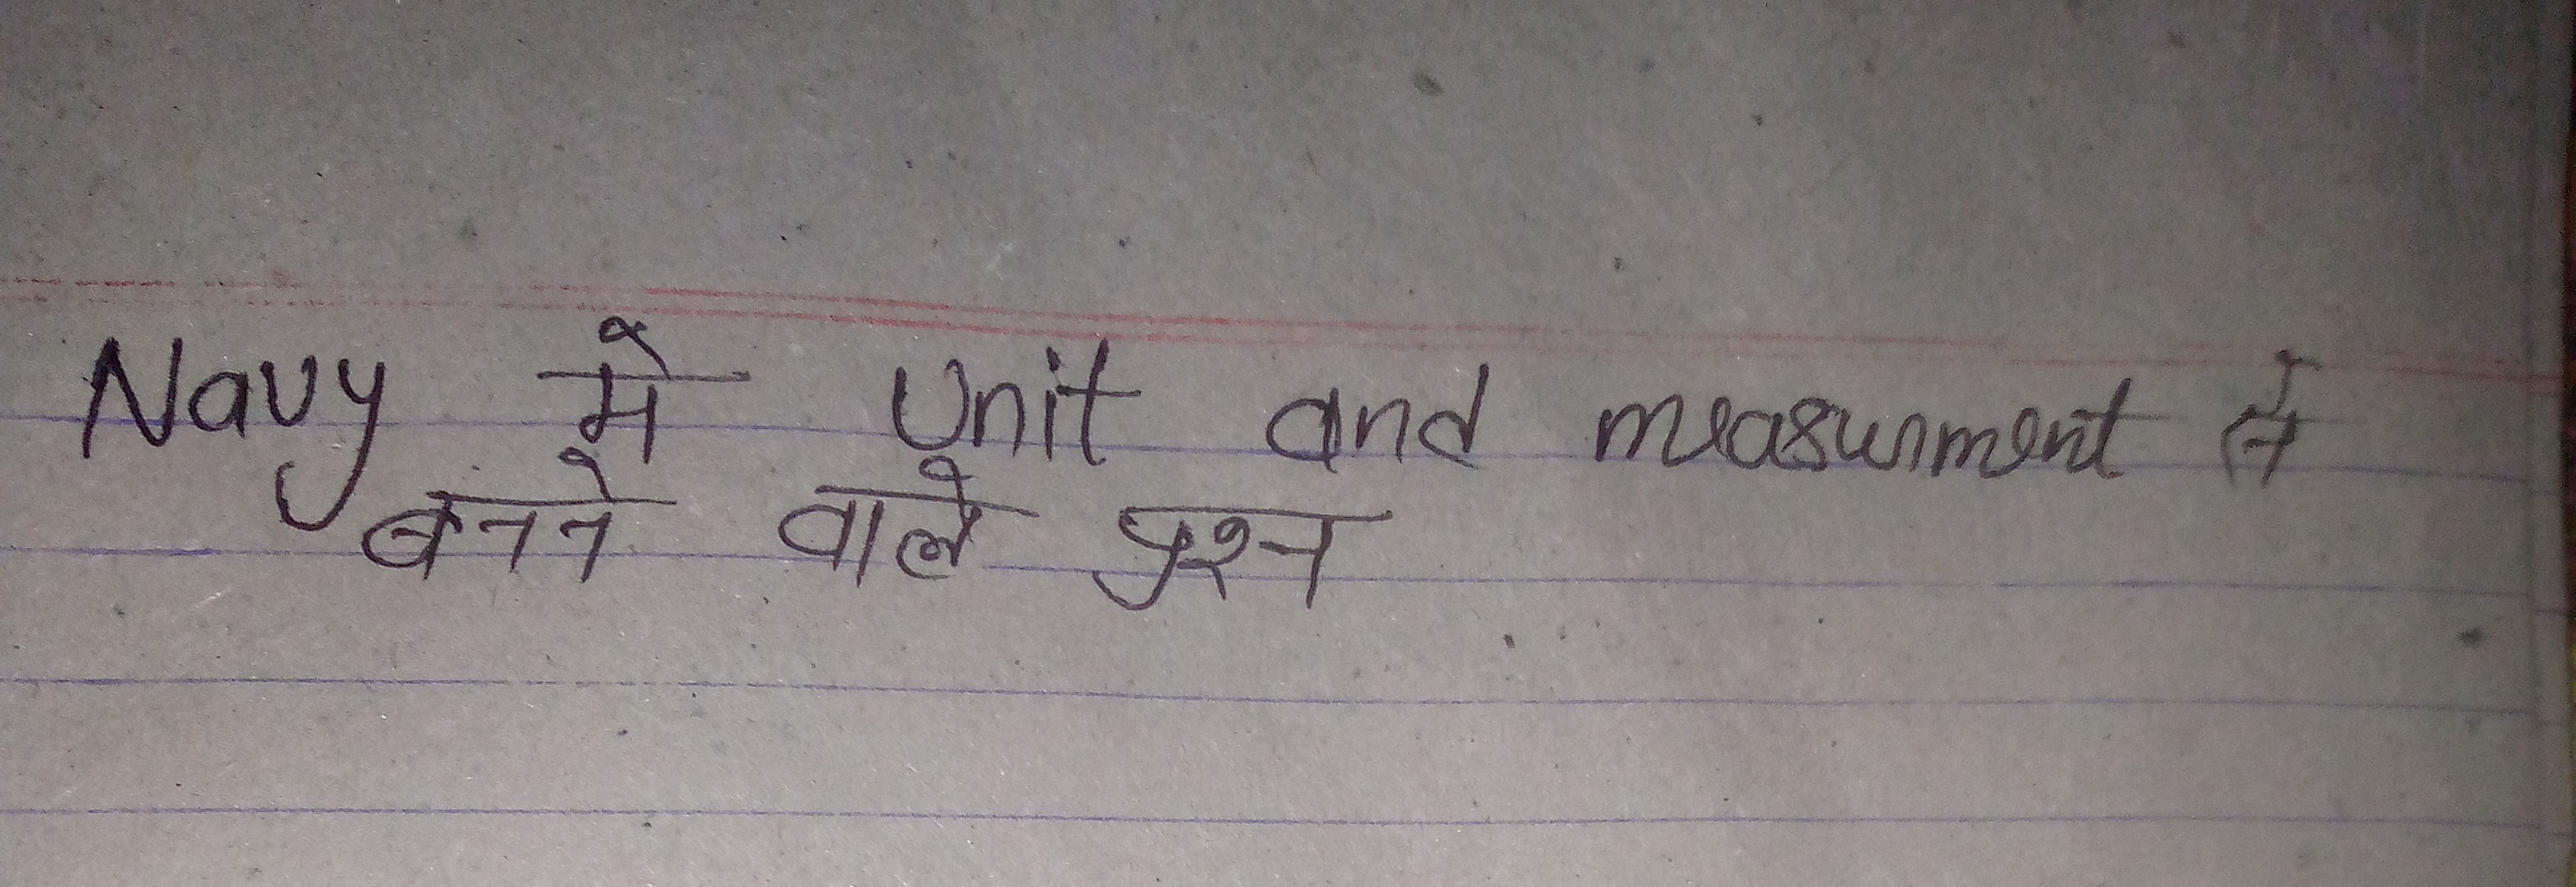 Navy मे Unit and measurment से
बनने वाले प्रश्न